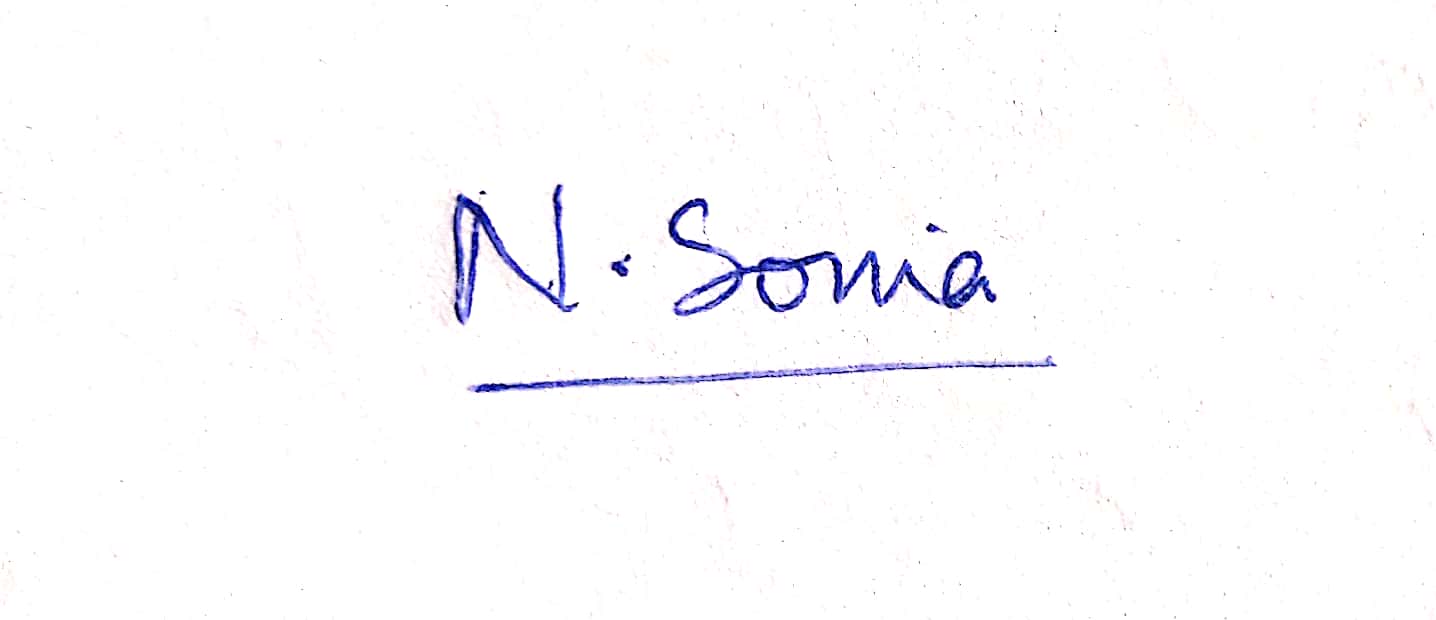 N. Sonia